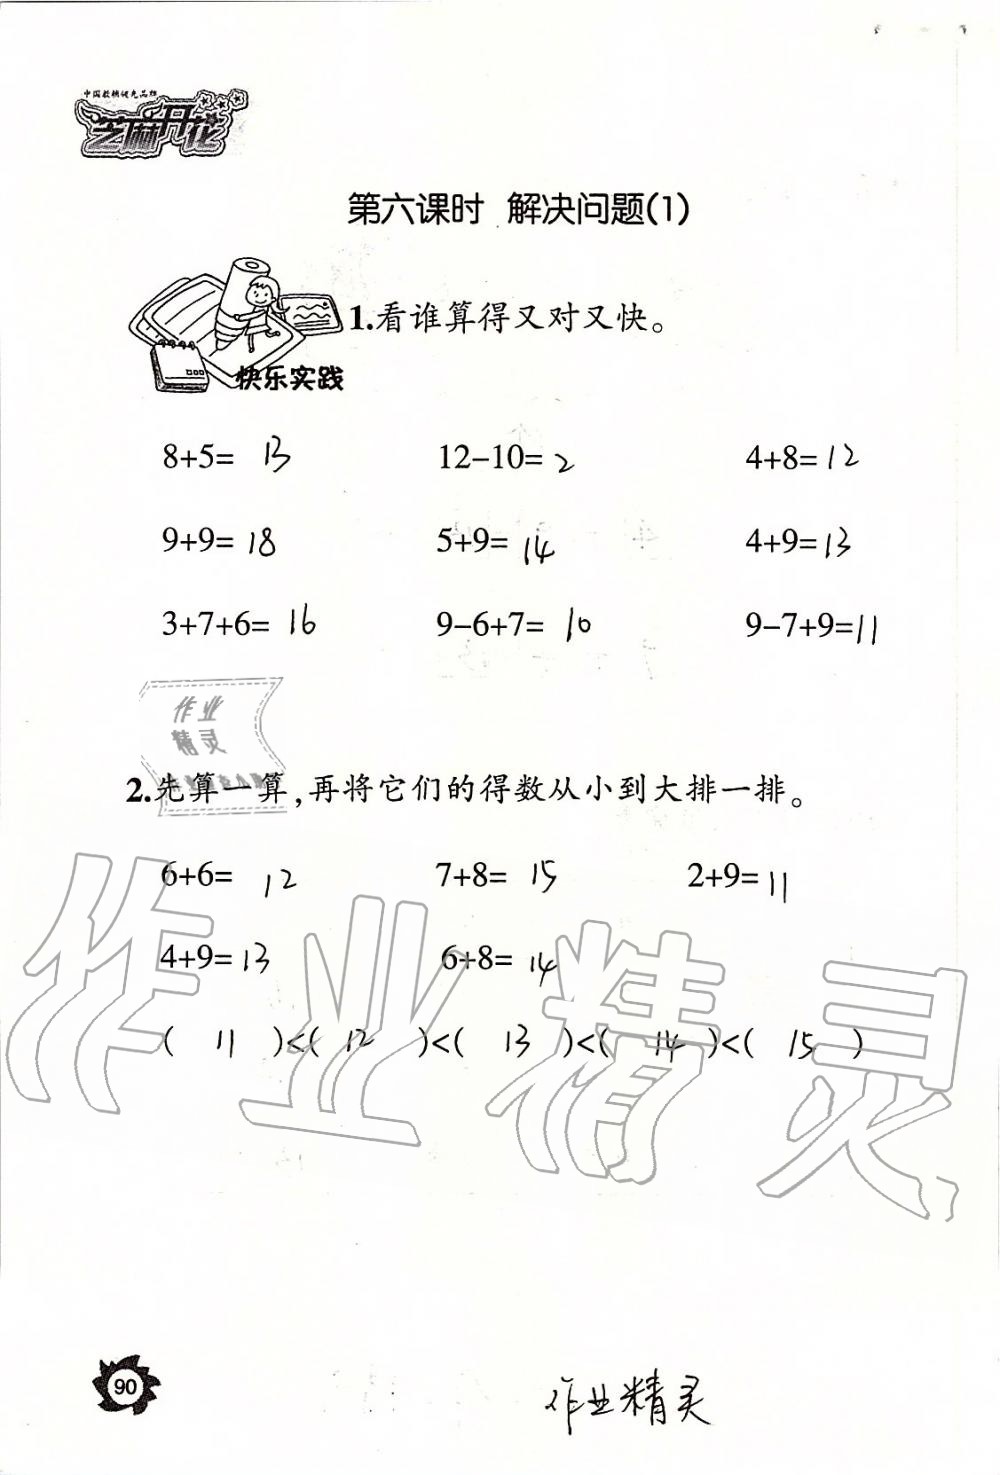 中国教辅领先品牌
芝麻开花
第六课时 解决问题(1)
1.看谁算得又对又快。
快乐实践
8+5= 13 12-10= 2 4+8=12
9+9= 18 5+9= 14 4+9=13
3+7+6= 16 9-6+7= 10 9-7+9=11
作业
精灵
2.先算一算,再将它们的得数从小到大排一排。
6+6= 12 7+8= 15 2+9=11
4+9=13 6+8= 14
( 11 )<( 12 )<( 13 )<( 14 )<( 15 )
作业精灵
90
作业精灵